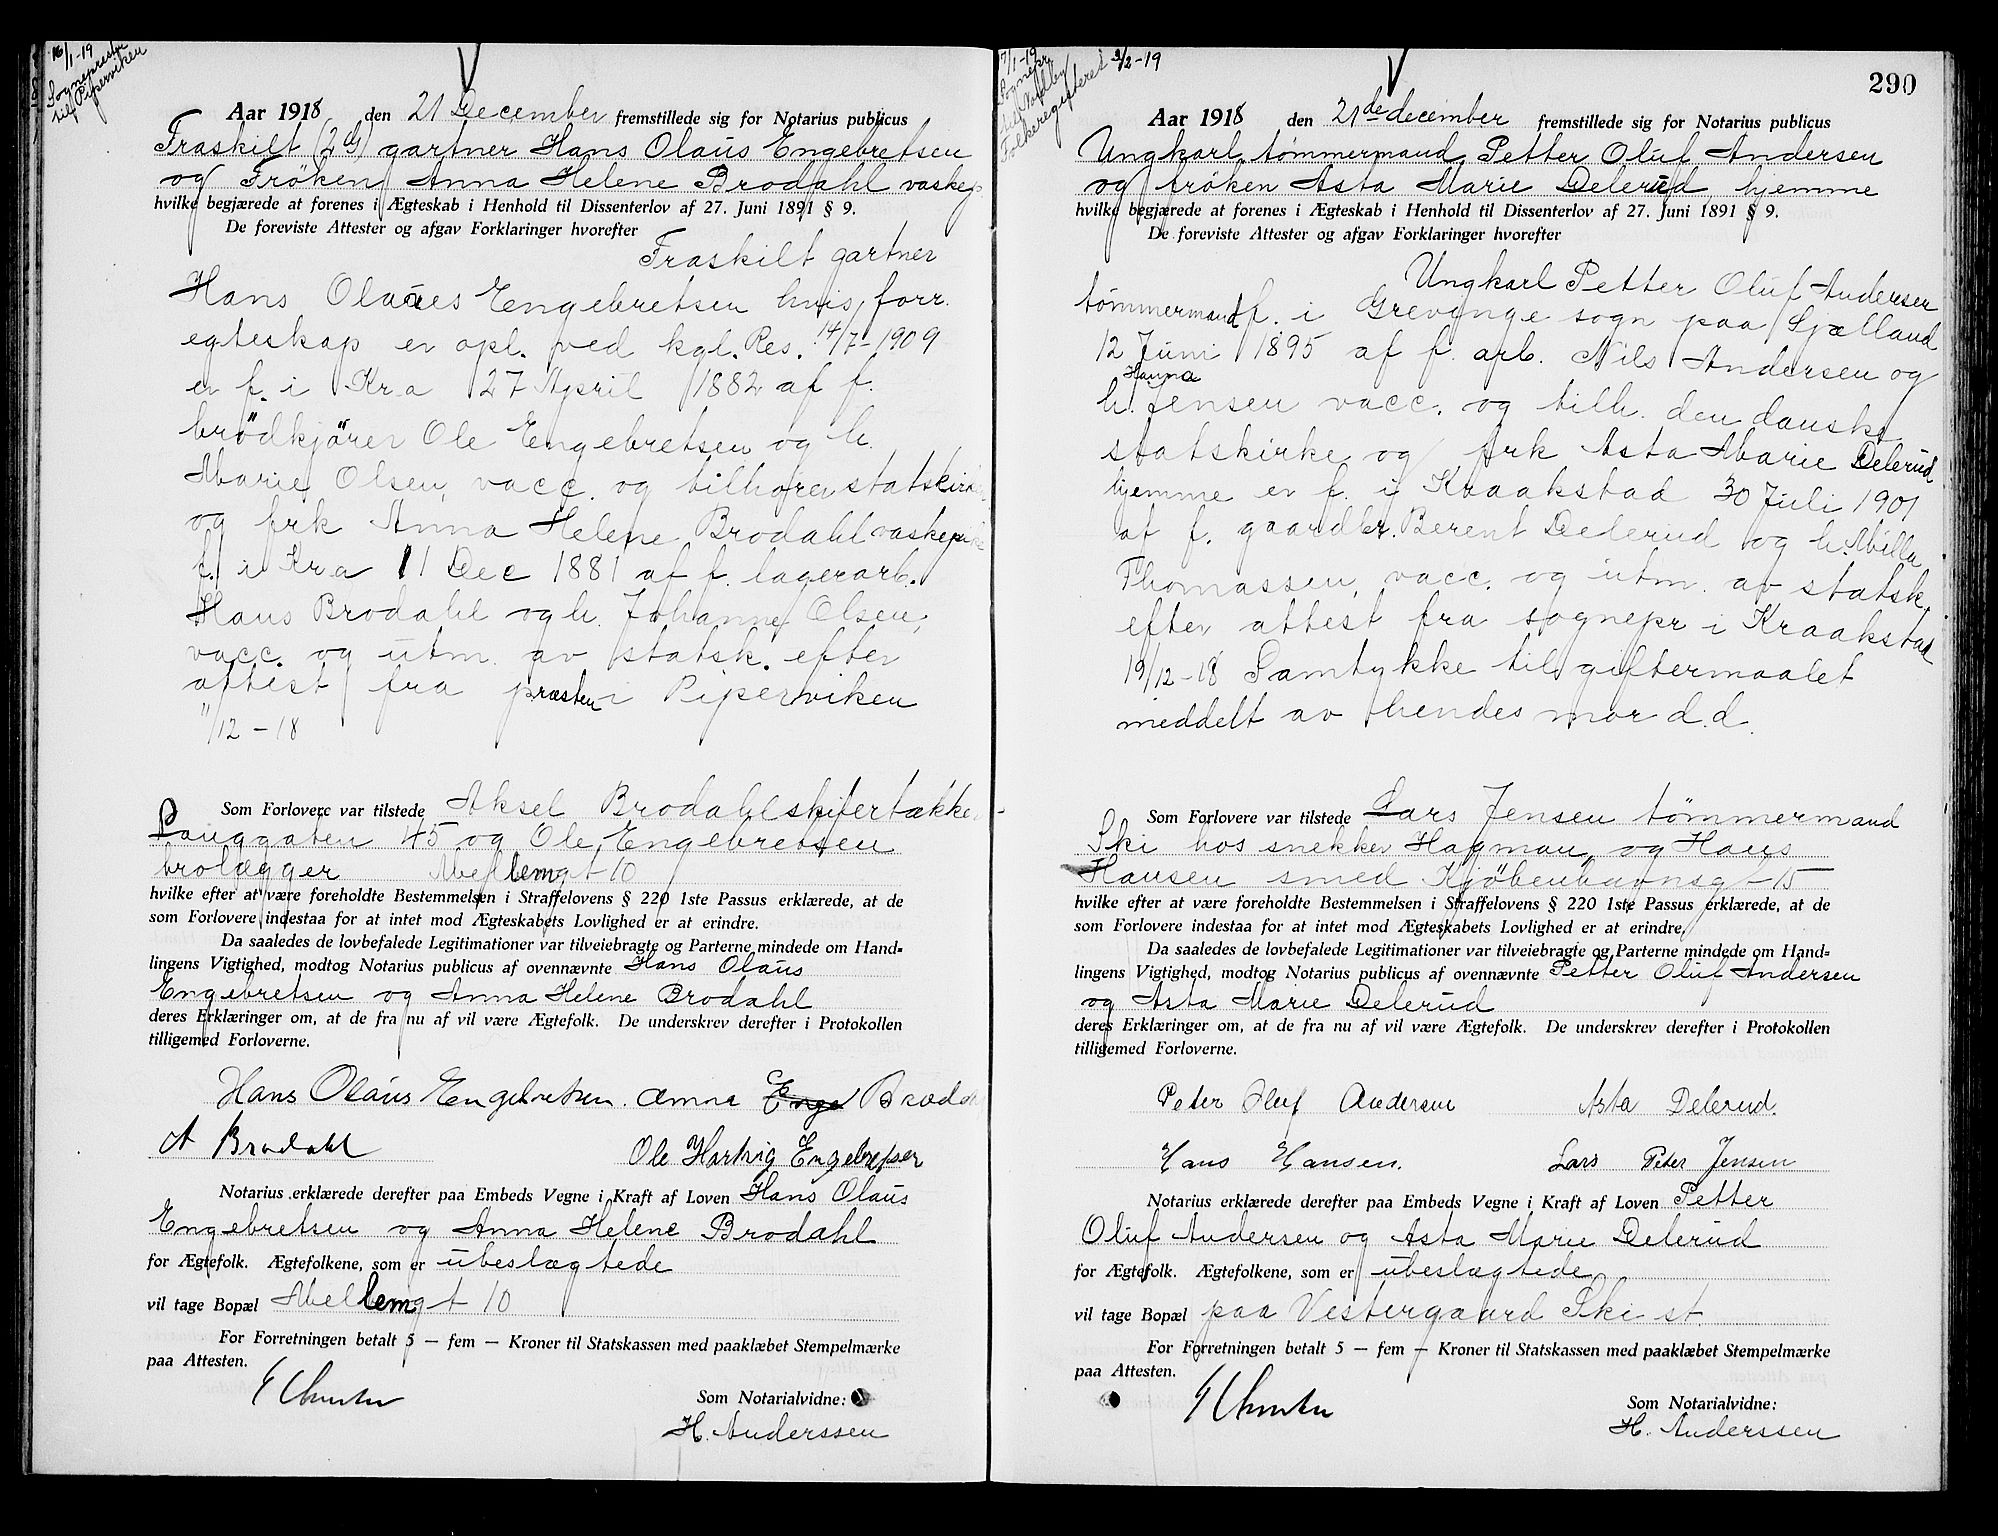 16/1-19
Sognepresten
til Piperviken
Aar 1918 den 21 December fremstillede sig for Notarius publicus
Fraskilt (2 G) gartner Hans Olaüs Engebretsen
og Frøken Anna Helene Brodahl vaskep.
hvilke begjærede at forenes i Ægteskab i Henhold til Dissenterlov af 27. Juni 1891 § 9.
De foreviste Attester og afgav Forklaringer hvorefter
Fraskilt gartner
Hans Olaües Engebretsen hvis forr.
egteskap er opl. ved kgl. Res. 14/7-1909
er f. i Kra 27 April 1882 af f.
brödkjörer Ole Engebretsen og h.
Marie Olsen, vacc. og tilhører statskirk
og frk Anna Helene Brodahl vaskepike
f. i Kra 11 Dec 1881 af f. lagerarb.
Hans Brodahl og h. Johanne Olsen,
vacc. og utm. av statsk. efter
attest fra præsten i Piperviken
"/12-18
Som Forlovere var tilstede Aksel Brodahl skifertække
Langgaten 45 og Ole Engebretsen
brolægger Mellemgt 10
hvilke efter at være foreholdte Bestemmelsen i Straffelovens § 220 1ste Passus erklærede, at de
som Forlovere indestaa for at intet mod Ægteskabets Lovlighed er at erindre.
Da saaledes de lovbefalede Legitimationer var tilveiebragte og Parterne mindede om Hand-
lingens Vigtighed, modtog Notarius publicus af ovennævnte Hans Olaüs
Engebretsen og Anna Helene Brodahl
deres Erklæringer om, at de fra nu af vil være Ægtefolk. De underskrev derefter i Protokollen
tilligemed Forloverne.
Hans Olaüs Engebretsen. Anna Enge Brodahl
A Brodahl Ole Hartvig Engebretsen
Notarius erklærede derefter paa Embeds Vegne i Kraft af Loven Hans Olaüs
Engebretsen og Anna Helene Brodahl
for Ægtefolk. Ægtefolkene, som er ubeslægtede
vil tage Bopæl Mellemgt 10
For Forretningen betalt 5 — fem — Kroner til Statskassen med paaklæbet Stempelmærke
paa Attesten.
Som Notarialvidne:
H. Anderssen
7/1-19
Sognepr
til Nordby
Folkeregisteret 3/2-19
290
Aar 1918 den 21de december fremstillede sig for Notarius publicus
Ungkarl tømmermand Petter Oluf Andersen
og frøken Asta Marie Delerud hjemme
hvilke begjærede at forenes i Ægteskab i Henhold til Dissenterlov af 27. Juni 1891 § 9.
De foreviste Attester og afgav Forklaringer hvorefter
Ungkarl Petter Oluf Andersen
tømmermand f. i Grevinge sogn paa Sjælland
12 Juni 1895 af f. arb. Nils Andersen og
h. Hanna Jensen vacc. og tilh. den danske
statskirke og frk Asta Marie Delerud
hjemme er f. i Kraakstad 30 Juli 1901
af f. gaardbr. Berent Delerud og h. Milla
Thomassen, vacc. og utm. av statsk.
efter attest fra sognepr i Kraakstad
19/12-18 Samtykke til giftermaalet
meddelt av hendes mor d.d.
Som Forlovere var tilstede Lars Jensen tømmermand
Ski hos snekker Hagman og Hans
Hansen smed Kjøbenhavnsg- 15
hvilke efter at være foreholdte Bestemmelsen i Straffelovens § 220 1ste Passus erklærede, at de
som Forlovere indestaa for at intet mod Ægteskabets Lovlighed er at erindre.
Da saaledes de lovbefalede Legitimationer var tilveiebragte og Parterne mindede om Hand-
lingens Vigtighed, modtog Notarius publicus af ovennævnte Petter Oluf Andersen
og Asta Marie Delerud
deres Erklæringer om, at de fra nu af vil være Ægtefolk. De underskrev derefter i Protokollen
tilligemed Forloverne.
Peter Oluf Andersen Asta Delerud.
Hans Hansen. Lars Peter Jensen
Notarius erklærede derefter paa Embeds Vegne i Kraft af Loven Petter
Oluf Andersen og Asta Marie Delerud
for Ægtefolk. Ægtefolkene, som er ubeslægtede
vil tage Bopæl paa Vestergaard Ski st
For Forretningen betalt 5 — fem — Kroner til Statskassen med paaklæbet Stempelmærke
paa Attesten.
Som Notarialvidne:
H. Anderssen